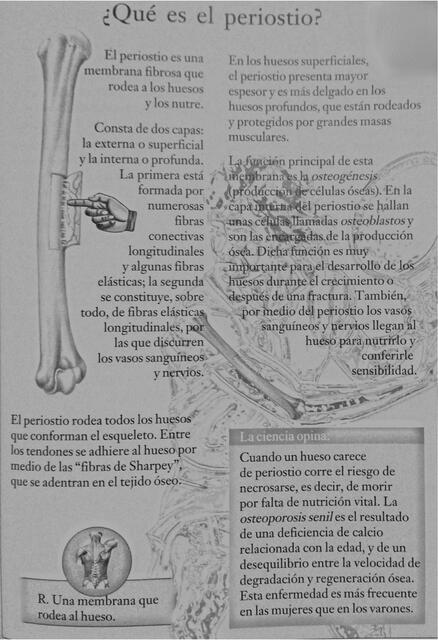 ¿Qué es el periostio?
El periostio es una
membrana fibrosa que
rodea a los huesos
y los nutre.
Consta de dos capas:
la externa o superficial
y la interna o profunda.
La primera está
formada por
numerosas
fibras
conectivas
longitudinales
y algunas fibras
elásticas; la segunda
se constituye, sobre
todo, de fibras elásticas
longitudinales, por
las que discurren
los vasos sanguíneos
y nervios.
En los huesos superficiales,
el periostio presenta mayor
espesor y es más delgado en los
huesos profundos, que están rodeados
y protegidos por grandes masas
musculares.
La función principal de esta
membrana es la osteogénesis
(producción de células óseas). En la
capa interna del periostio se hallan
unas células llamadas osteoblastos y
son las encargadas de la producción
ósea. Dicha función es muy
importante para el desarrollo de los
huesos durante el crecimiento o
después de una fractura. También,
por medio del periostio los vasos
sanguíneos y nervios llegan al
hueso para nutrirlo y
conferirle
sensibilidad.
El periostio rodea todos los huesos
que conforman el esqueleto. Entre
los tendones se adhiere al hueso por
medio de las “fibras de Sharpey”,
que se adentran en el tejido óseo.
R. Una membrana que
rodea al hueso.
La ciencia opina:
Cuando un hueso carece
de periostio corre el riesgo de
necrosarse, es decir, de morir
por falta de nutrición vital. La
osteoporosis senil es el resultado
de una deficiencia de calcio
relacionada con la edad, y de un
desequilibrio entre la velocidad de
degradación y regeneración ósea.
Esta enfermedad es más frecuente
en las mujeres que en los varones.